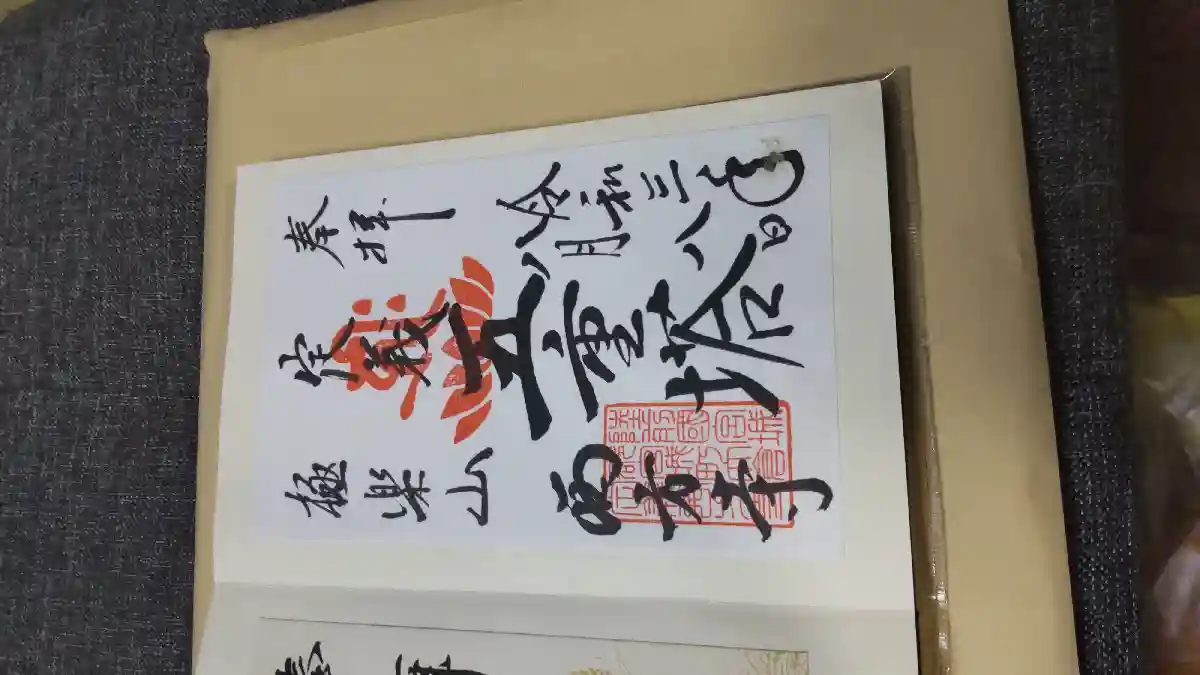 奉拝
令和三年
八月八日
定義
五重塔
極楽山
西方寺
奉拝